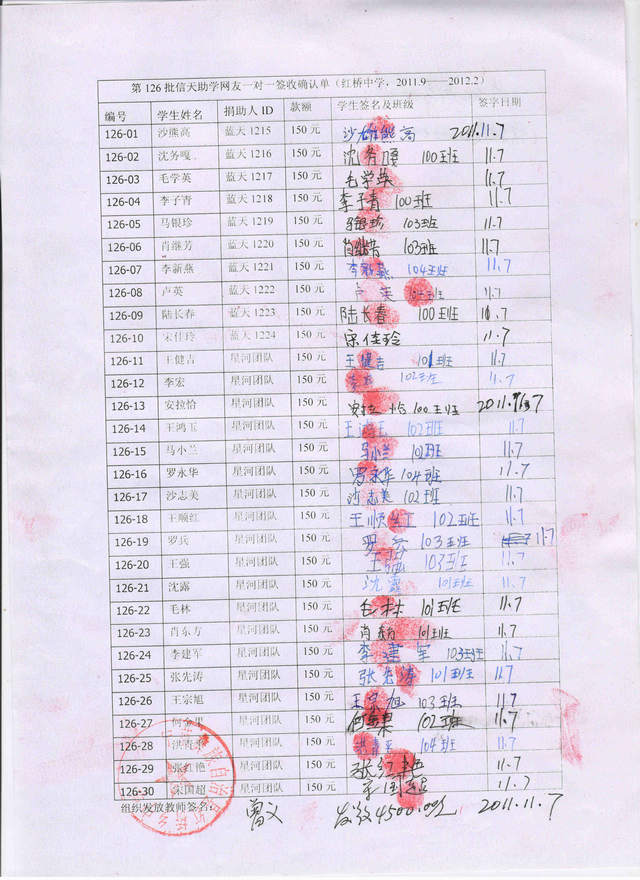 第 126 批信天助学网友一对一签收确认单（红桥中学，2011.9——2012.2）
编号 学生姓名 捐助人 ID 款额 学生签名及班级 签字日期
126-01 沙熊高 蓝天 1215 150 元 沙熊高 2011.11.7
126-02 沈务嘎 蓝天 1216 150 元 沈务嘎 100班 11.7
126-03 毛学英 蓝天 1217 150 元 毛学英 11.7
126-04 李子青 蓝天 1218 150 元 李子青 100班 11.7
126-05 马银珍 蓝天 1219 150 元 马银珍 103班 11.7
126-06 肖继芳 蓝天 1220 150 元 103班 11.7
126-07 李新燕 蓝天 1221 150 元 李新燕 104班 11.7
126-08 卢英 蓝天 1222 150 元 11.7
126-09 陆长春 蓝天 1223 150 元 陆长春 100班 11.7
126-10 宋佳玲 蓝天 1224 150 元 宋佳玲 11.7
126-11 王健吉 星河团队 150 元 王健吉 101班 11.7
126-12 李宏 星河团队 150 元 102班 11.7
126-13 安拉恰 星河团队 150 元 安拉恰 100班 2011.11.7
126-14 王鸿玉 星河团队 150 元 王鸿玉 102班 11.7
126-15 马小兰 星河团队 150 元 马小兰 102班 11.7
126-16 罗永华 星河团队 150 元 罗永华 104班 11.7
126-17 沙志美 星河团队 150 元 沙志美 102班 11.7
126-18 王顺红 星河团队 150 元 王顺红 102班 11.7
126-19 罗兵 星河团队 150 元 罗 103班 11.7
126-20 王强 星河团队 150 元 王强 103班 11.7
126-21 沈露 星河团队 150 元 沈露 101班 11.7
126-22 毛林 星河团队 150 元 毛林 101班 11.7
126-23 肖东方 星河团队 150 元 肖东方 101班 11.7
126-24 李建军 星河团队 150 元 李建军 103班 11.7
126-25 张先涛 星河团队 150 元 张先涛 101班 11.7
126-26 王宗旭 星河团队 150 元 王宗旭 103班 11.7
126-27 何金果 星河团队 150 元 何金果 102班 11.7
126-28 洪青平 星河团队 150 元 洪青平 104班 11.7
126-29 张红艳 星河团队 150 元 张红艳 11.7
126-30 宋国超 星河团队 150 元 宋国超 11.7
组织发放教师签名： 曾义 发放4500.00元 2011.11.7